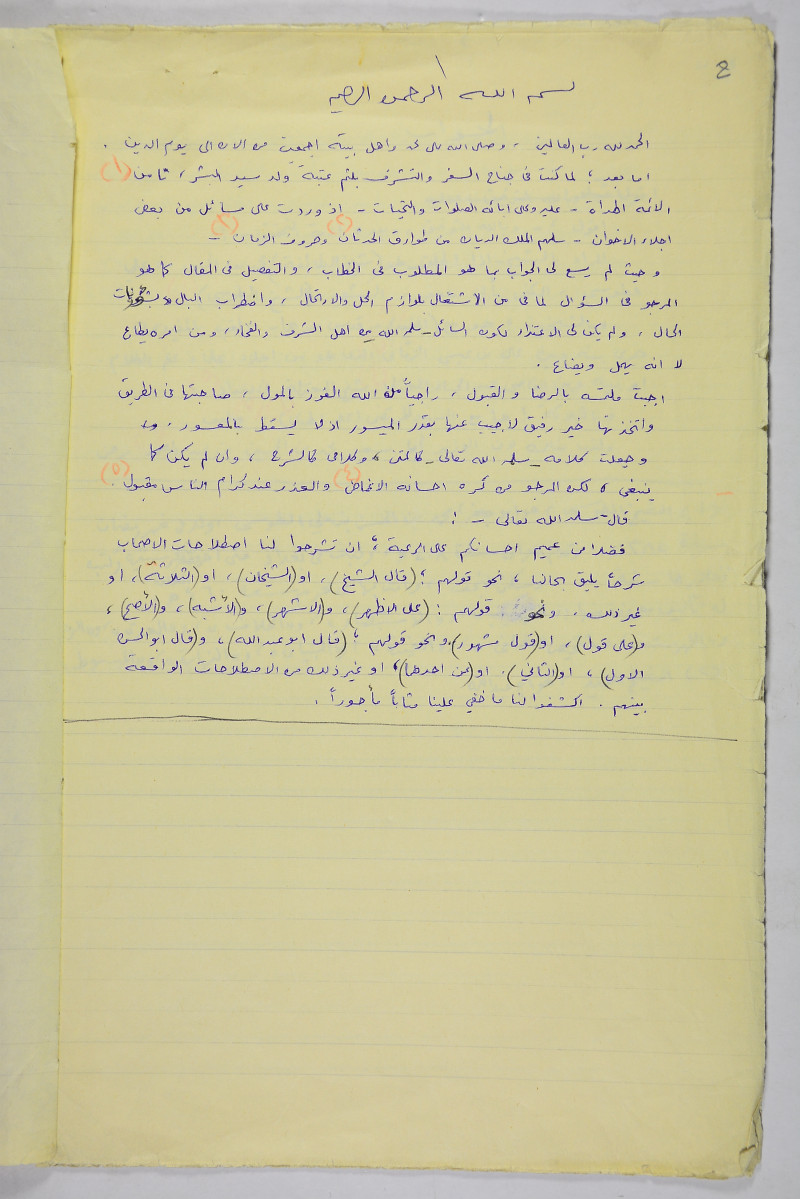 8
بسم الله الرحمن الرحيم
الحمد لله رب العالمين ، وصلى الله على محمد واهل بيته اجمعين من الان الى يوم الدين .
اما بعد ؛ لما كنت في جناح السفر والتشرف بلثم عتبة ولد سيد البشر ، ثامن (١)
الائمة الهداة - عليه وعلى ابائه الصلوات والتحيات - اذ وردت علي مسائل من بعض
اجلاء الاخوان - سلمهم الملك الديان من طوارق الحدثان (٢) وصروف الزمان (٣) -
وحيث لم يسع لي الجواب بما هو المطلوب في الخطاب ، والتفصيل في المقال كما هو
المرجو في السؤال لما في من الاشتغال بلوازم الحل والارتحال ، واضطراب البال
الحال ، ولم يكن لي الاعتذار لكون السائل - سلمه الله من اهل الشرف والفخار ، ومن امره يطاع
لا انه يهمل ويضاع .
اجبت ملتمسه بالرضا والقبول ، راجياً من الله الفوز بالمول ، صاحبتها في الطريق
واتخذتها خير رفيق لاجيب عنها بقدر الميسور اذ لا يسقط بالمعسور .
وجعلت كلامه - سلمه الله تعالى - كالمتن ، وكلامي كالشرح ، وان لم يكن كما
ينبغي ، لكن المرجو من كرم احسانه الاغماض (٤) والعذر عند كرام الناس مقبول (٥) .
قال - سلمه الله تعالى - :
فضلا من عميم احسانكم على الرعية ؛ ان تشرحوا لنا اصطلاحات الاصحاب
شرحاً يليق بحالنا ، نحو قولهم ؛ (قال الشيخ) ، او (الشيخان) ، او (الثلاثة) ، او
غير ذلك . ونحو قولهم : (على الاظهر) ، و(الاشهر) ، و(الأشبه) ، و(الأصح) ،
و(على قول) ، او (قول مشهور) . ونحو قولهم ؛ (قال ابو عبدالله) ، و(قال ابوالحسن
الاول) ، او (الثاني) . او (عن احدهما) ، او غير ذلك من الاصطلاحات الواقعة
بينهم . اكشفوا لنا ما خفي علينا مثاباً مأجوراً .